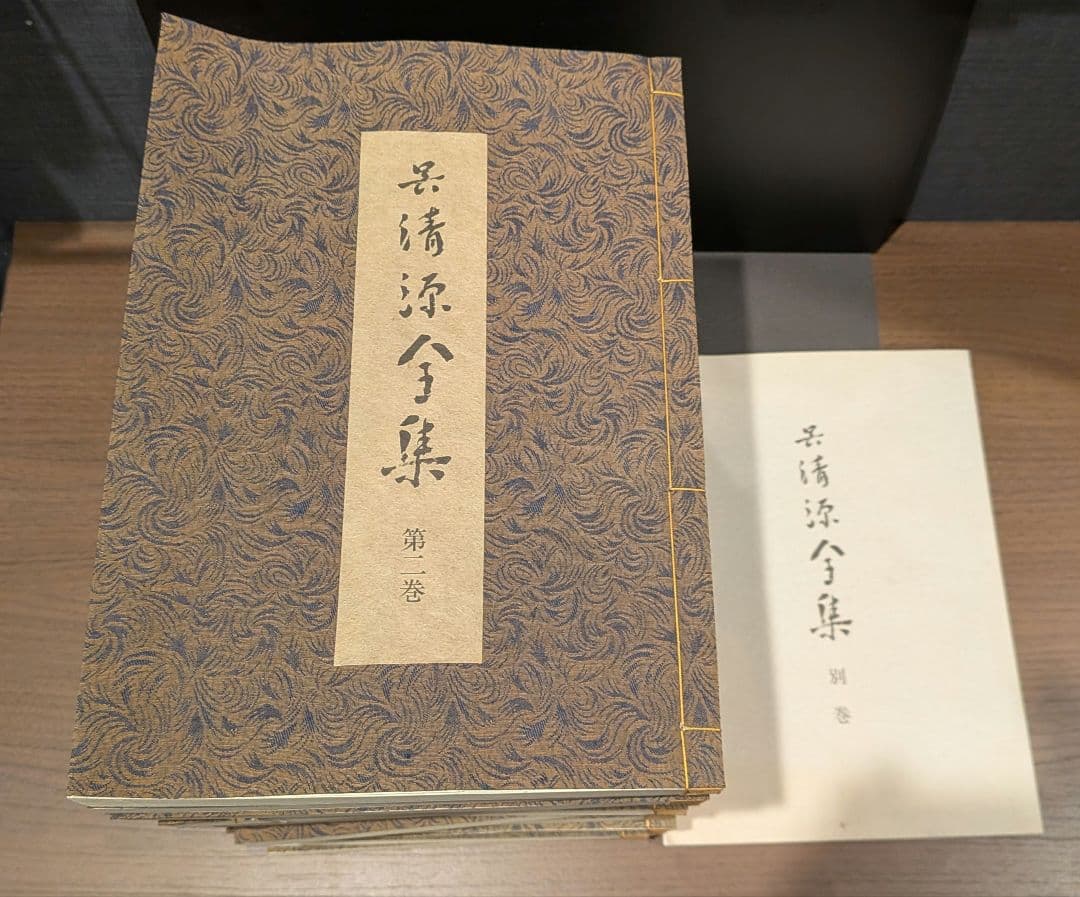 呉清源全集
第二巻
呉清源全集
別巻